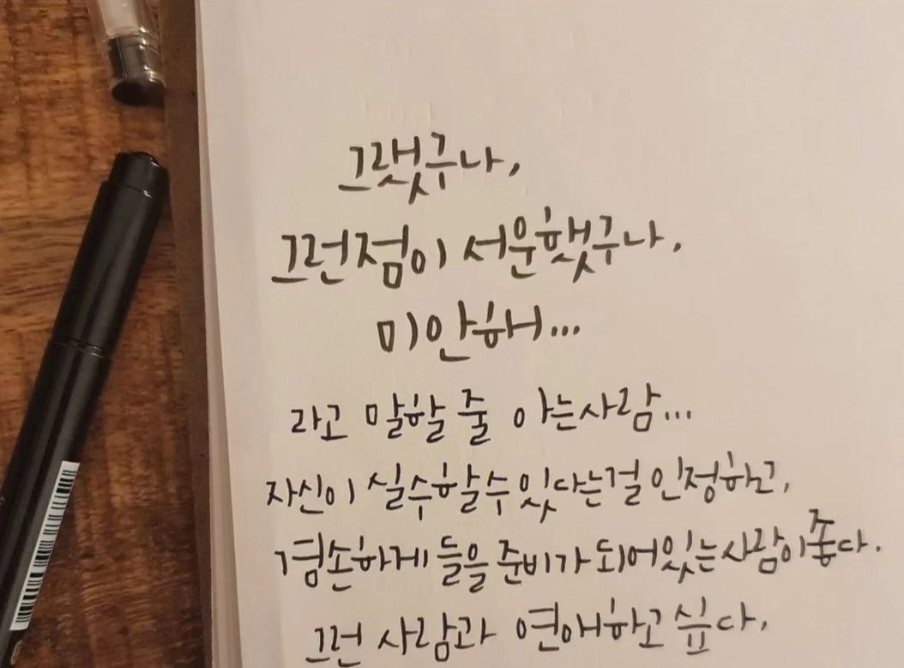 그랬구나,
그런점이 서운했구나,
미안해...
라고 말할 줄 아는사람...
자신이 실수할수있다는걸 인정하고,
겸손하게 들을 준비가 되어있는사람이좋다.
그런 사람과 연애하고싶다,